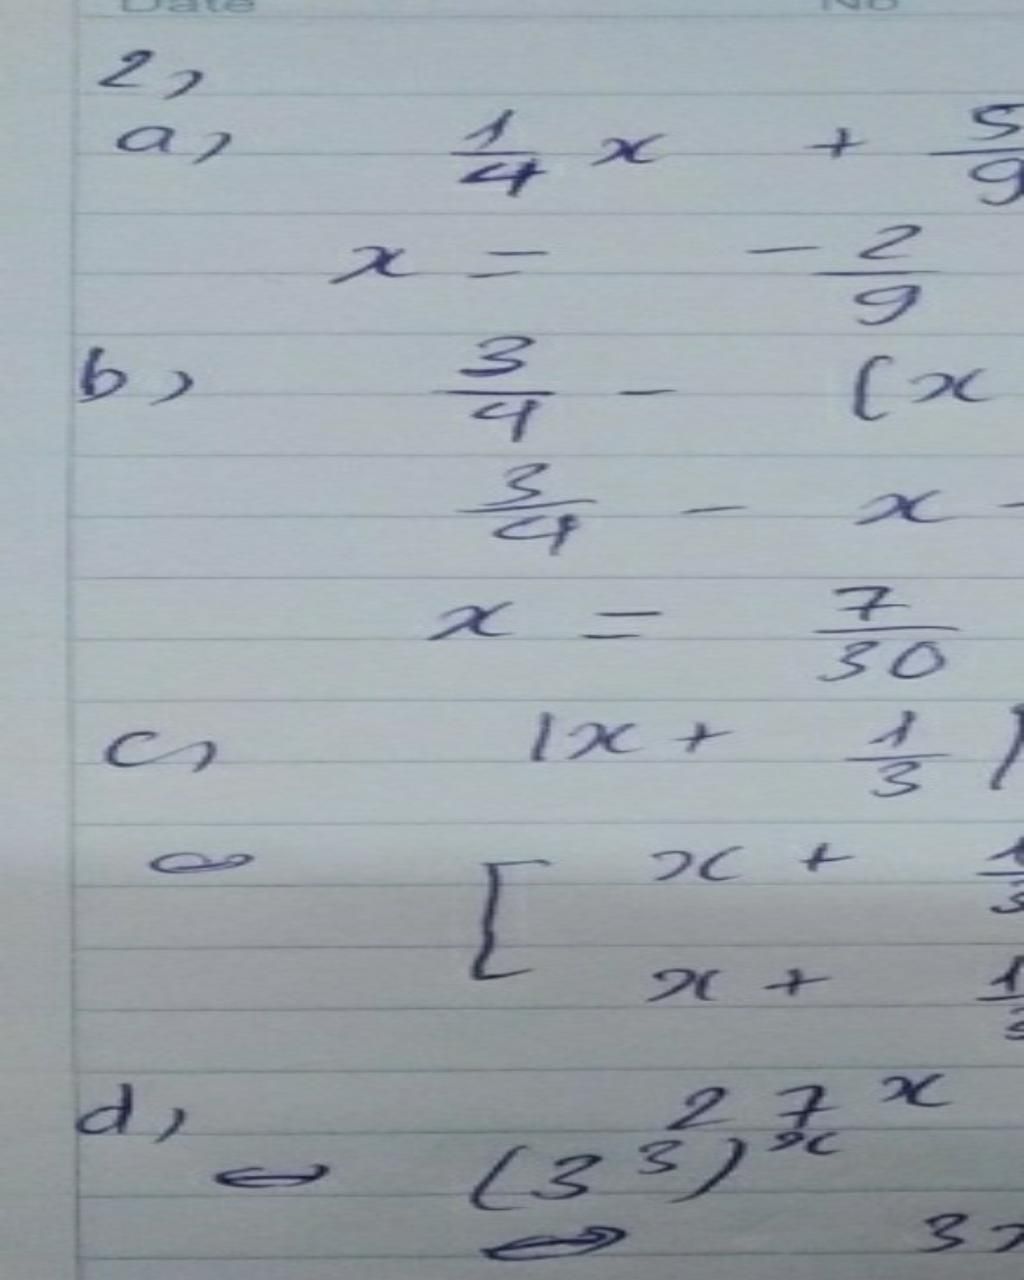 Date No
2,
a, 1/4 x + 5/9
x = - 2/9
b, 3/4 - (x
3/4 - x -
x = 7/30
c, |x + 1/3 |
⇔ [ x + 1/3
x + 1/3
d, 27^x
⇔ (3^3)^x
⇔ 3x